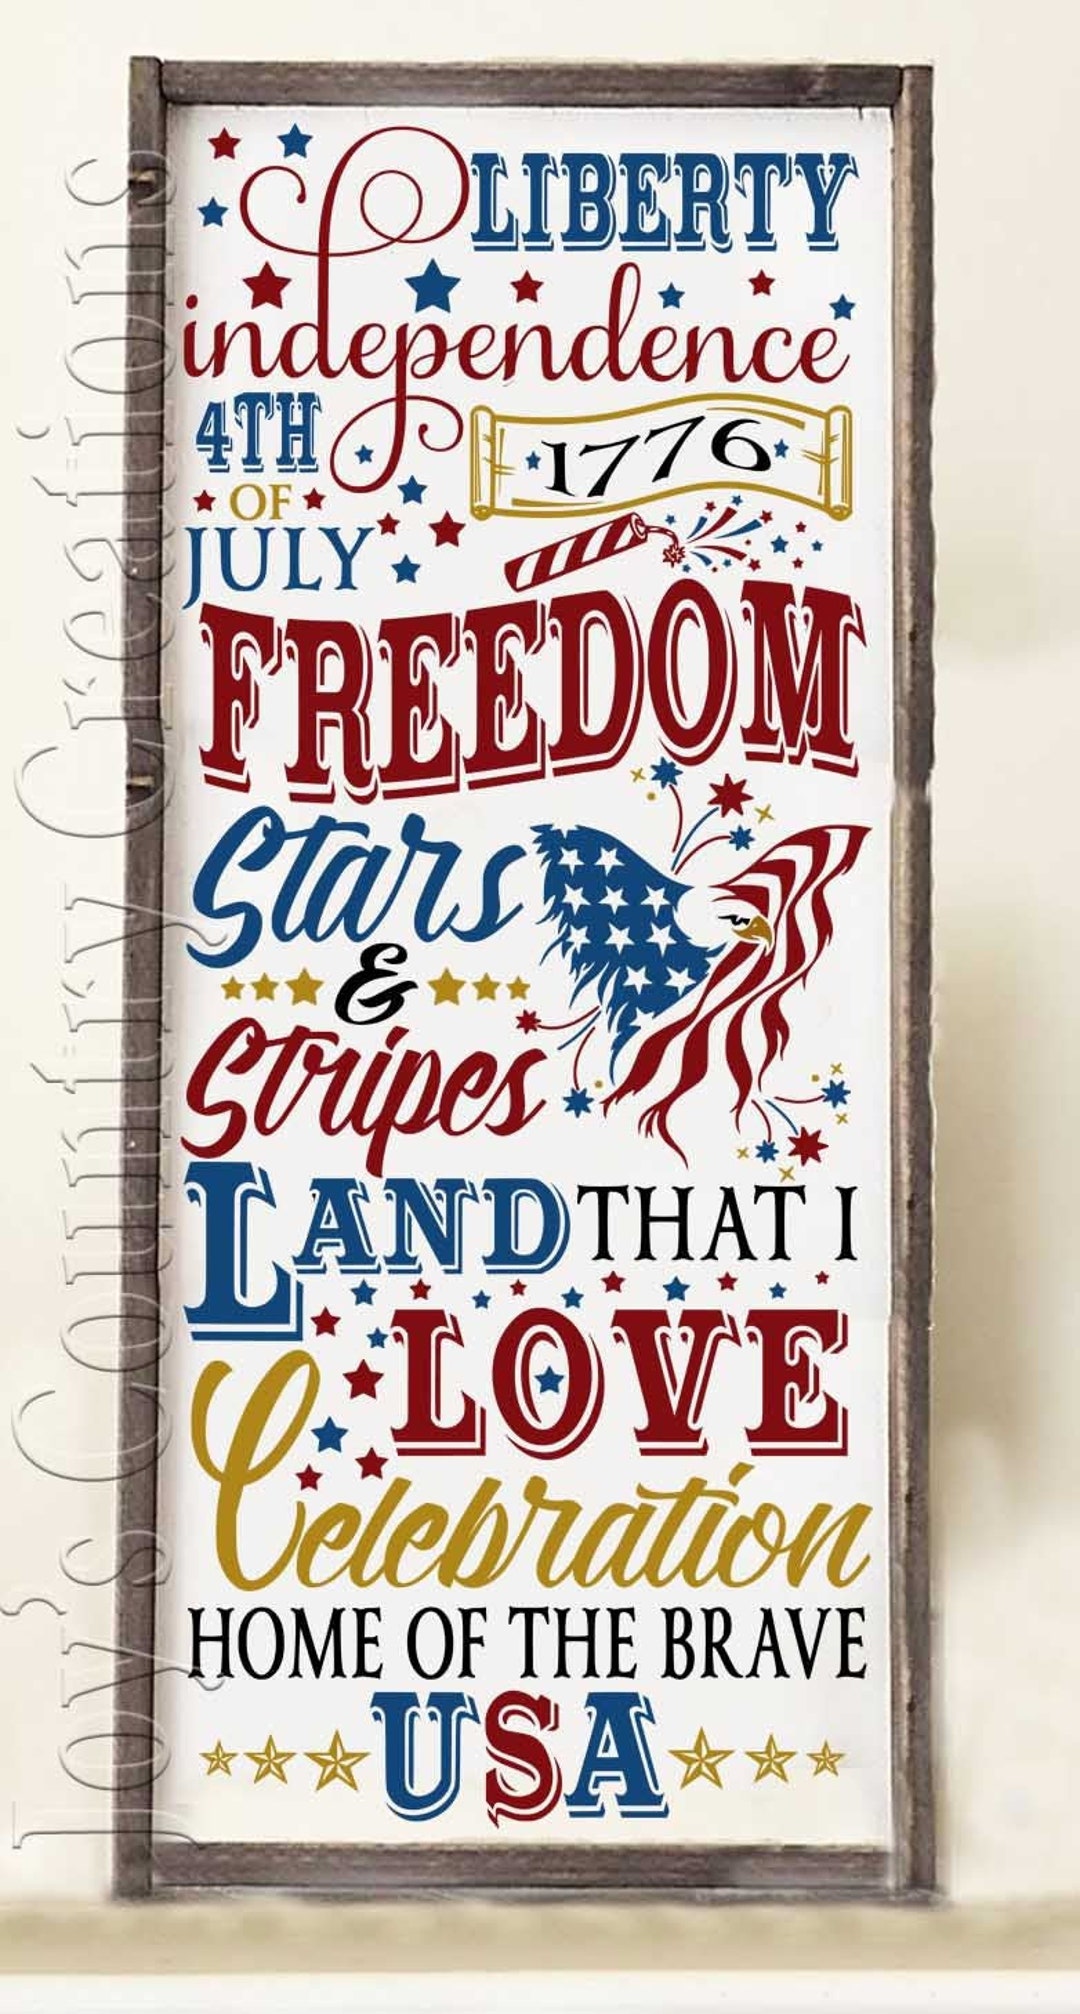 LIBERTY
independence
4TH
OF
JULY
1776
FREEDOM
Stars
&
Stripes
LAND THAT I
LOVE
Celebration
HOME OF THE BRAVE
USA
Joy's Country Creations